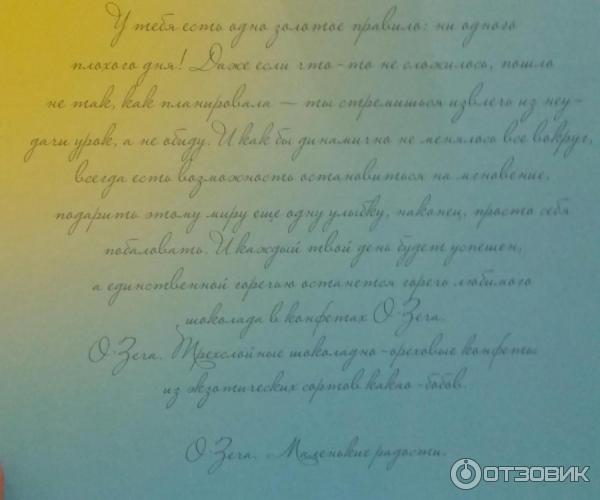 У тебя есть одно золотое правило: ни одного
плохого дня! Даже если что-то не сложилось, пошло
не так, как планировала — ты стремишься извлечь из неу-
дачи урок, а не обиду. И как бы динамично не менялось все вокруг,
всегда есть возможность остановиться на мгновение,
подарить этому миру еще одну улыбку, наконец, просто себя
побаловать. И каждый твой день будет успешен,
а единственной горечью останется горечь любимого
шоколада в конфетах О'Зера.
О'Зера. Трехслойные шоколадно-ореховые конфеты
из экзотических сортов какао-бобов.
О'Зера. Маленьких радости.
ОТЗОВИК